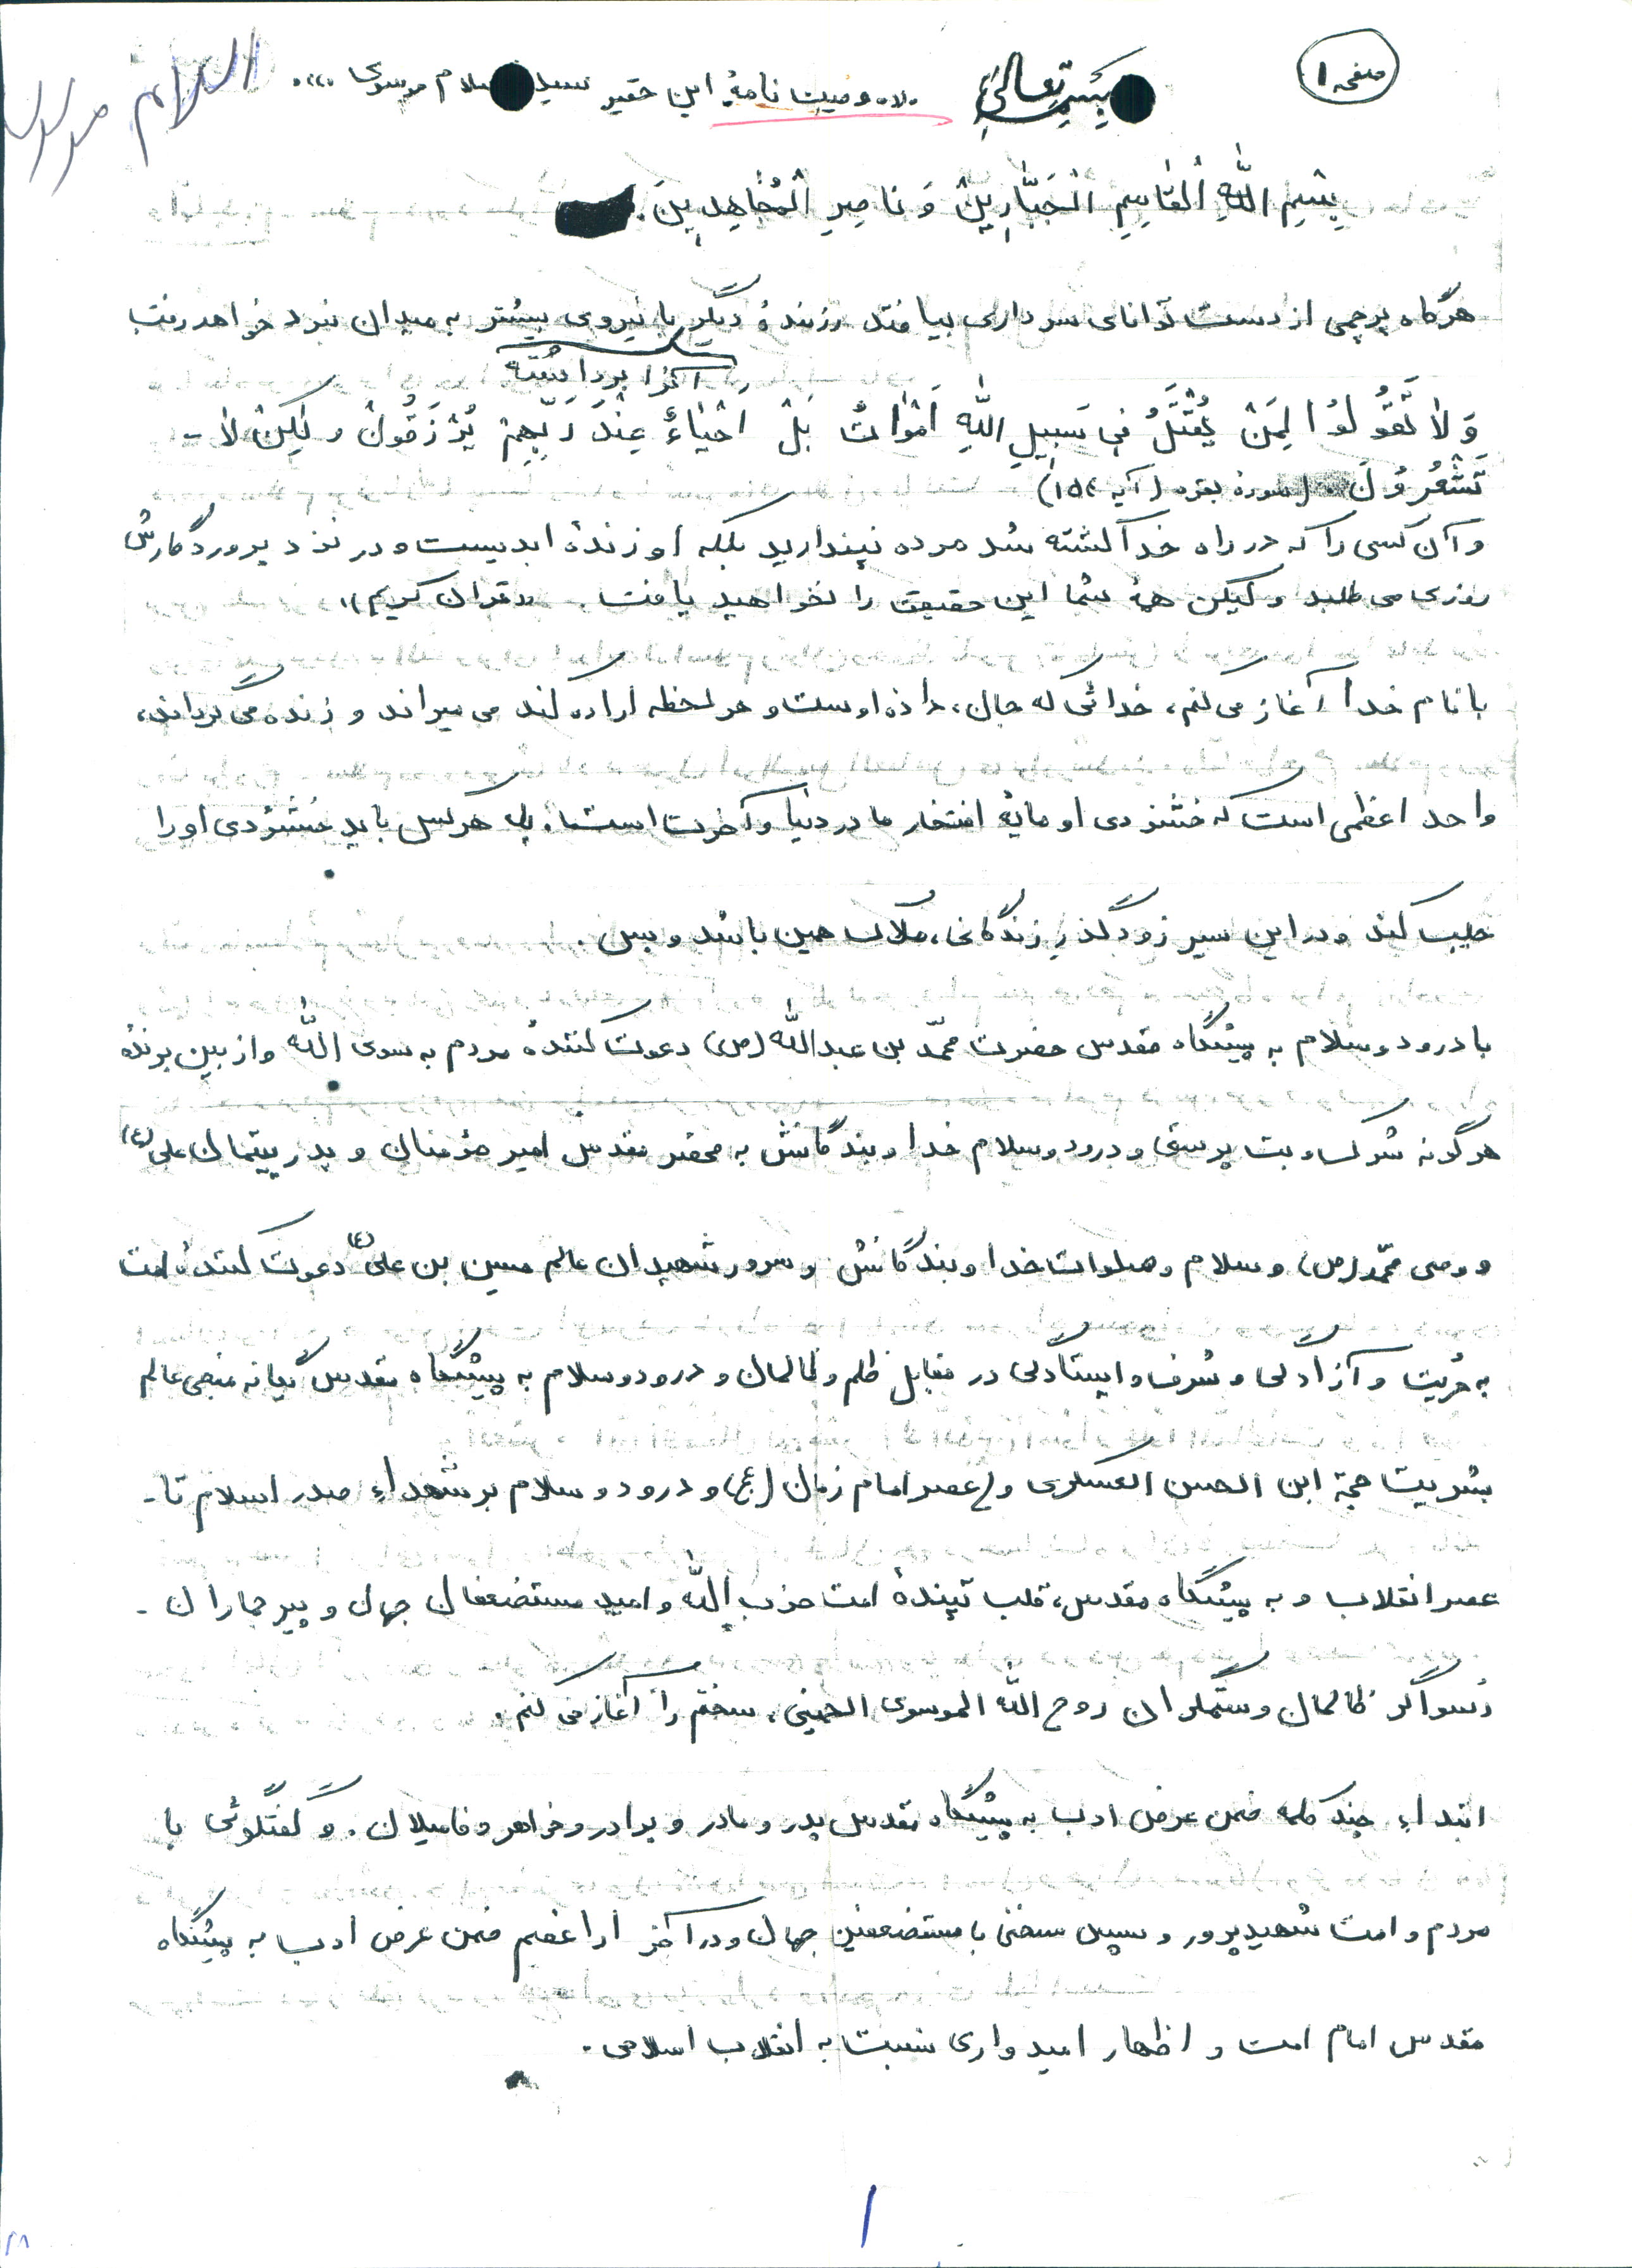 صفحه ۱
بسمه تعالی
«وصیت نامهٔ این حقیر سید سلام موسوی»
السلام موسوی
بِسْمِ اللّٰهِ الْقاسِمِ الْجَبّارینْ وَ ناصِرِ الْمُجٰاهِدینَ.
هرگاه پرچمی از دست توانای سرداری بیافتد رزمندهٔ دیگر با نیروی بیشتر به میدان نبرد خواهد رفت
آنرا برداشته
وَلاٰ تَقُولُوا لِمَنْ یُقْتَلُ فی سَبیلِ اللّٰهِ اَمْوٰاتٌ بَلْ اَحْیٰاءٌ عِنْدَ رَبِّهِمْ یُرْزَقُونْ وَلٰکِنْ لاٰ -
تَشْعُرُونَ (سورهٔ بقره (آیه ۱۵۴)
و آن کسی را که در راه خدا کشته شد مرده نپندارید بلکه او زندهٔ ابدیست و در نزد پروردگارش
روزی می طلبد ولیکن همهٔ شما این حقیقت را نخواهید یافت. «قرآن کریم»
با نام خدا آغاز می کنم، خدائی که جان، دادهٔ اوست و هر لحظه اراده کند می میراند و زنده می گرداند،
واحد اعظمی است که خشنودی او مایهٔ افتخار ما در دنیا و آخرت است. پس هر کس باید خشنودی او را
جلب کند و در این سیر زودگذر زندگانی، ملاک همین باشد و بس.
با درود و سلام به پیشگاه مقدس حضرت محمّد بن عبداللّٰه (ص) دعوت کنندهٔ مردم به سوی اللّٰه و از بین برندهٔ
هرگونه شرک و بت پرستی و درود و سلام خدا و بندگانش به محضر مقدس امیر مؤمنان و پدر یتیمان علی (ع)
و وصی محمّد (ص) و سلام و صلوات خدا و بندگانش و سرور شهیدان عالم حسین بن علی (ع) دعوت کنندهٔ امت
به حُریت و آزادگی و شرف و ایستادگی در مقابل ظلم و ظالمان و درود و سلام به پیشگاه مقدس یگانه منجی عالم
بشریت حجة ابن الحسن العسکری ولی عصر امام زمان (عج) و درود و سلام بر شهداء صدر اسلام تا -
عصر انقلاب و به پیشگاه مقدس، قلب تپندهٔ امت حزب اللّٰه و امید مستضعفان جهان و پیر جماران -
رُسواگر ظالمان و ستمگران روح اللّٰه الموسوی الخمینی، سخنم را آغاز می کنم.
ابتداء چند کلمه ضمن عرض ادب به پیشگاه مقدس پدر و مادر و برادر و خواهر و فامیلان. و گفتگوئی با
مردم و امت شهیدپرور و سپس سخنی با مستضعفین جهان و در آخر ضمن عرض ادب به پیشگاه
مقدس امام امت و اظهار امیدواری نسبت به انقلاب اسلامی.
۱